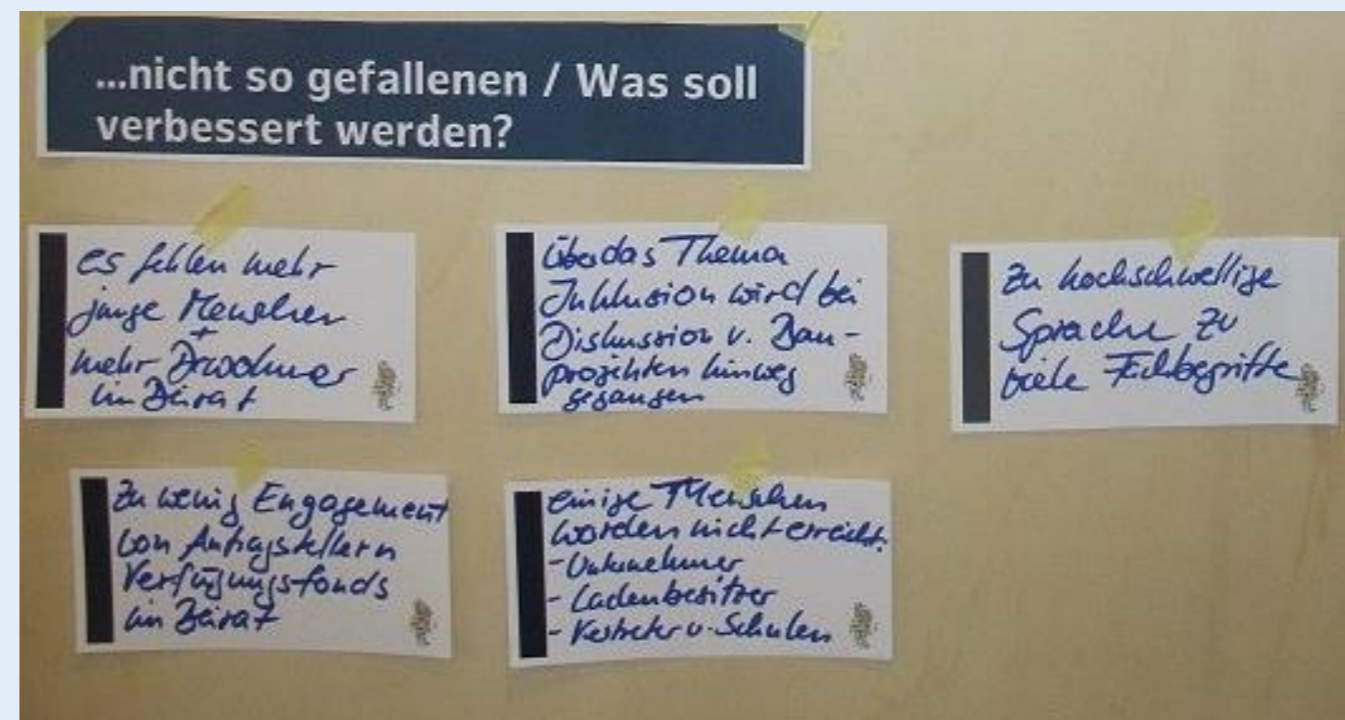 ...nicht so gefallenen / Was soll
verbessert werden?
es fehlen mehr
junge Menschen
+
mehr Bewohner
im Beirat
Über das Thema
Inklusion wird bei
Diskussion v. Bau-
projekten hinweg
gegangen
zu hochschwellige
Sprache zu
viele Fachbegriffe
zu wenig Engagement
von Antragstellern
Verfügungsfonds
im Beirat
einige Menschen
worden nicht erreicht:
- Unternehmer
- Ladenbesitzer
- Vertreter v. Schulen